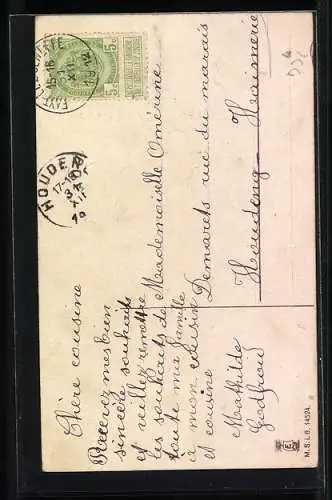 Chère cousine
Recevez mes bien
sincère souhaits
et veillez remettre
les souhaits de
toute ma famille
a mon cousin
et cousine
Mathilde
Godfroid
Mademoiselle Omérine
Demarets rue du marais
Houdeng-Haimerie
15-16
XII
1912
5c 5c
HOUDENG
17-18
XII
M.S.i.B. 14524